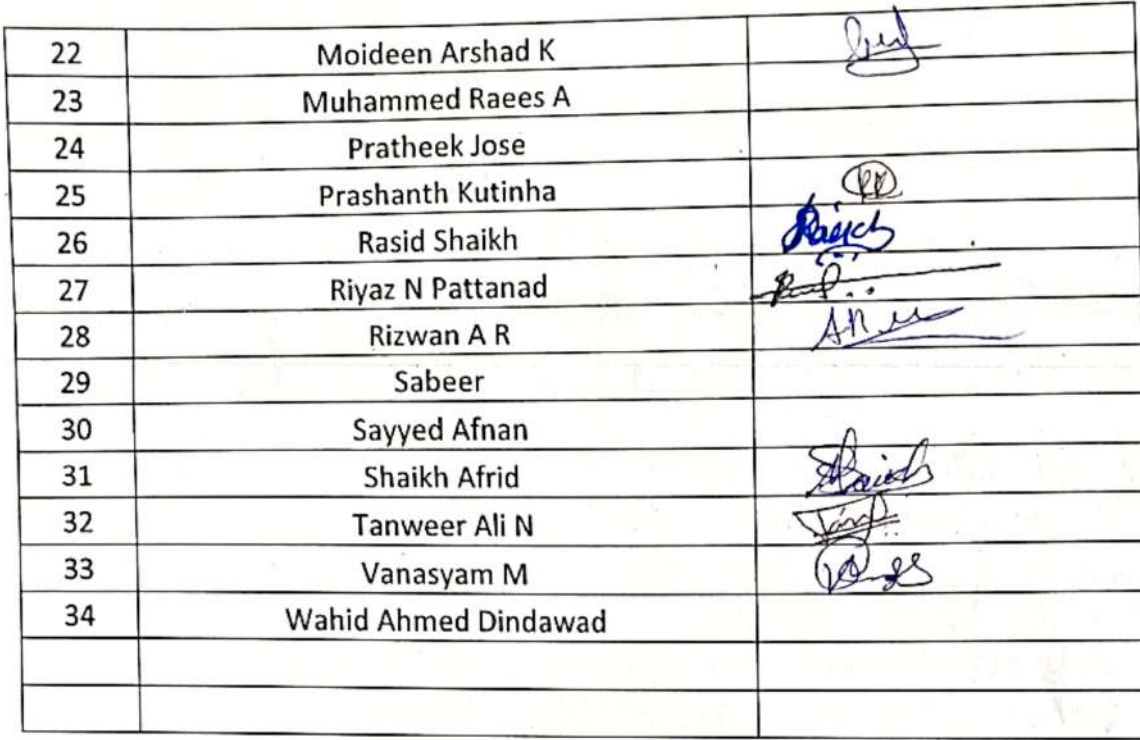 22 Moideen Arshad K
23 Muhammed Raees A
24 Pratheek Jose
25 Prashanth Kutinha
26 Rasid Shaikh
27 Riyaz N Pattanad
28 Rizwan A R
29 Sabeer
30 Sayyed Afnan
31 Shaikh Afrid
32 Tanweer Ali N
33 Vanasyam M
34 Wahid Ahmed Dindawad